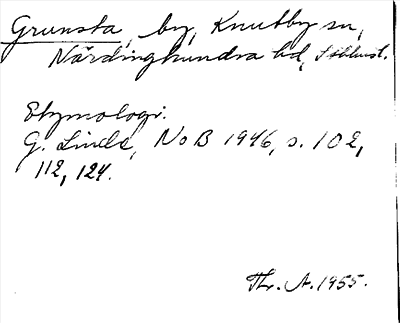 Grunsta, by, Knutby sn,
Närdinghundra hd, Sthlmsl.
Etymologi.
G. Linde, NoB 1946, s. 102,
112, 124.
Th. A. 1955.